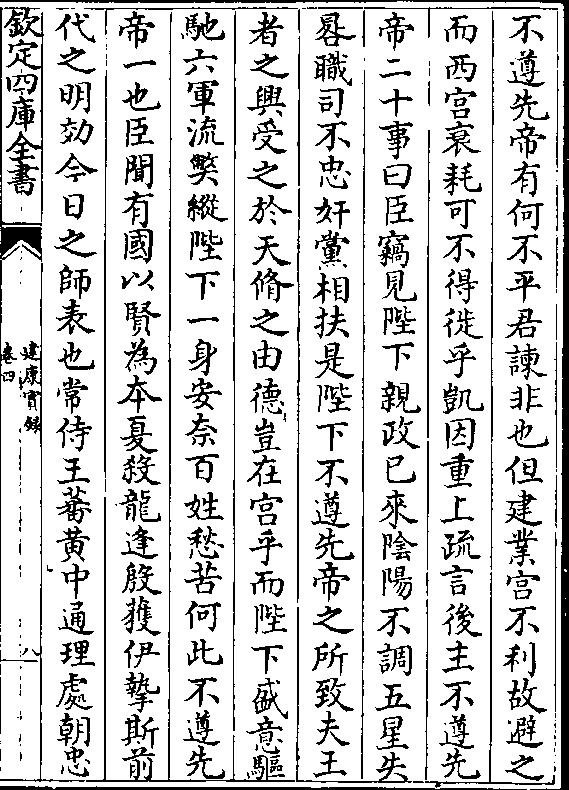 不遵先帝有何不平君諫非也但建業宫不利故避之
而西宫衰耗可不得徙乎凱因重上疏言後主不遵先
帝二十事曰臣竊見陛下親政已來隂陽不調五星失
晷職司不忠奸黨相扶是陛下不遵先帝之所致夫王
者之興受之於天脩之由德豈在宫乎而陛下盛意驅
馳六軍流弊縱陛下一身安奈百姓愁苦何此不遵先
帝一也臣聞有國以賢為本夏殺龍逄殷獲伊摯斯前
代之明効今日之師表也常侍王蕃黄中通理處朝忠
欽定四庫全書
建康實録
卷四
八